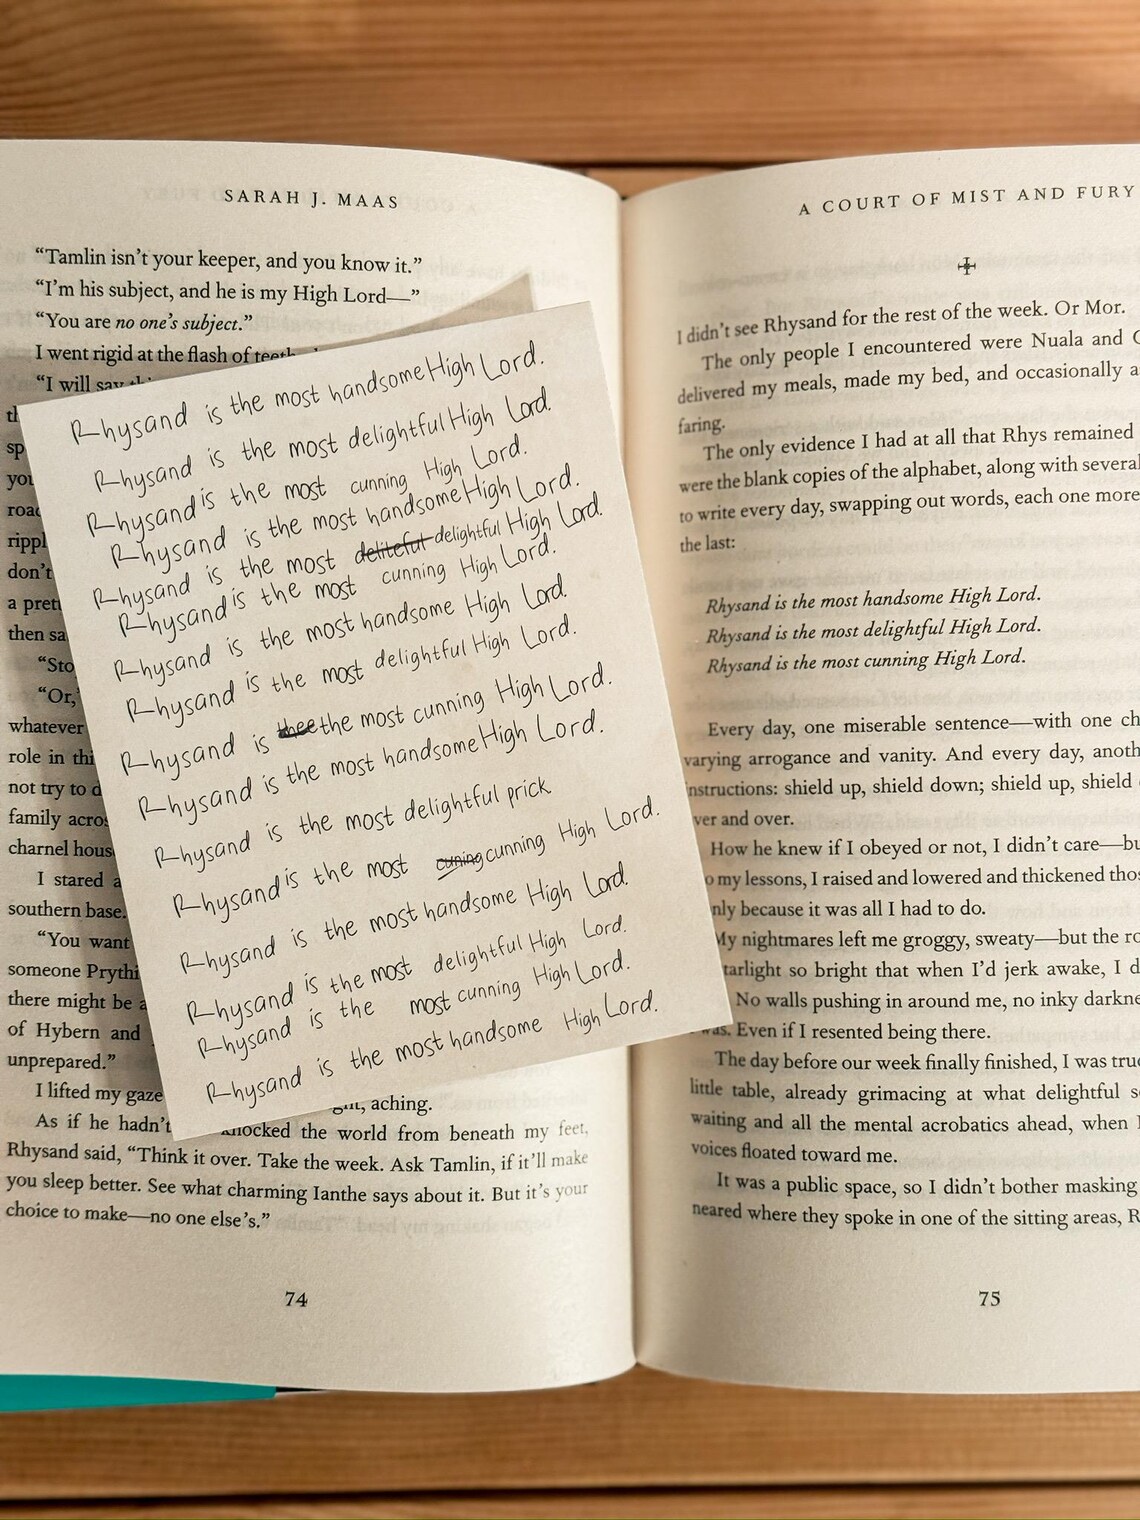 SARAH J. MAAS
“Tamlin isn’t your keeper, and you know it.”
“I’m his subject, and he is my High Lord—”
“You are no one’s subject.”
I went rigid at the flash of teeth
“I will say
“Sto
“Or,
whatever
role in thi
not try to d
family acros
charnel hous
I stared a
southern base.
“You want
someone Prythi
there might be a
of Hybern and
unprepared.”
I lifted my gaze
aching.
As if he hadn’t knocked the world from beneath my feet,
Rhysand said, “Think it over. Take the week. Ask Tamlin, if it’ll make
you sleep better. See what charming Ianthe says about it. But it’s your
choice to make—no one else’s.”
74
Rhysand is the most handsome High Lord.
Rhysand is the most delightful High Lord.
Rhysand is the most cunning High Lord.
Rhysand is the most handsome High Lord.
Rhysand is the most deliteful delightful High Lord.
Rhysand is the most cunning High Lord.
Rhysand is the most handsome High Lord.
Rhysand is the most delightful High Lord.
Rhysand is thee the most cunning High Lord.
Rhysand is the most handsome High Lord.
Rhysand is the most delightful prick
Rhysand is the most cuning cunning High Lord.
Rhysand is the most handsome High Lord.
Rhysand is the most delightful High Lord.
Rhysand is the most cunning High Lord.
Rhysand is the most handsome High Lord.
A COURT OF MIST AND FURY
I didn’t see Rhysand for the rest of the week. Or Mor.
The only people I encountered were Nuala and C
delivered my meals, made my bed, and occasionally a
faring.
The only evidence I had at all that Rhys remained
were the blank copies of the alphabet, along with several
to write every day, swapping out words, each one more
the last:
Rhysand is the most handsome High Lord.
Rhysand is the most delightful High Lord.
Rhysand is the most cunning High Lord.
Every day, one miserable sentence—with one ch
varying arrogance and vanity. And every day, anoth
instructions: shield up, shield down; shield up, shield
ver and over.
How he knew if I obeyed or not, I didn’t care—bu
o my lessons, I raised and lowered and thickened thos
nly because it was all I had to do.
My nightmares left me groggy, sweaty—but the ro
tarlight so bright that when I’d jerk awake, I d
No walls pushing in around me, no inky darkne
was. Even if I resented being there.
The day before our week finally finished, I was truc
little table, already grimacing at what delightful s
waiting and all the mental acrobatics ahead, when
voices floated toward me.
It was a public space, so I didn’t bother masking
neared where they spoke in one of the sitting areas, R
75